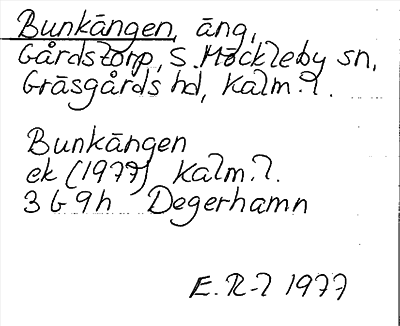 Bunkängen, äng,
Gårdstorp, S. Möckleby sn,
Gräsgårds hd, Kalm. l.
Bunkängen
ek (1977) Kalm. l.
3 G 9h Degerhamn
E. R-l 1977